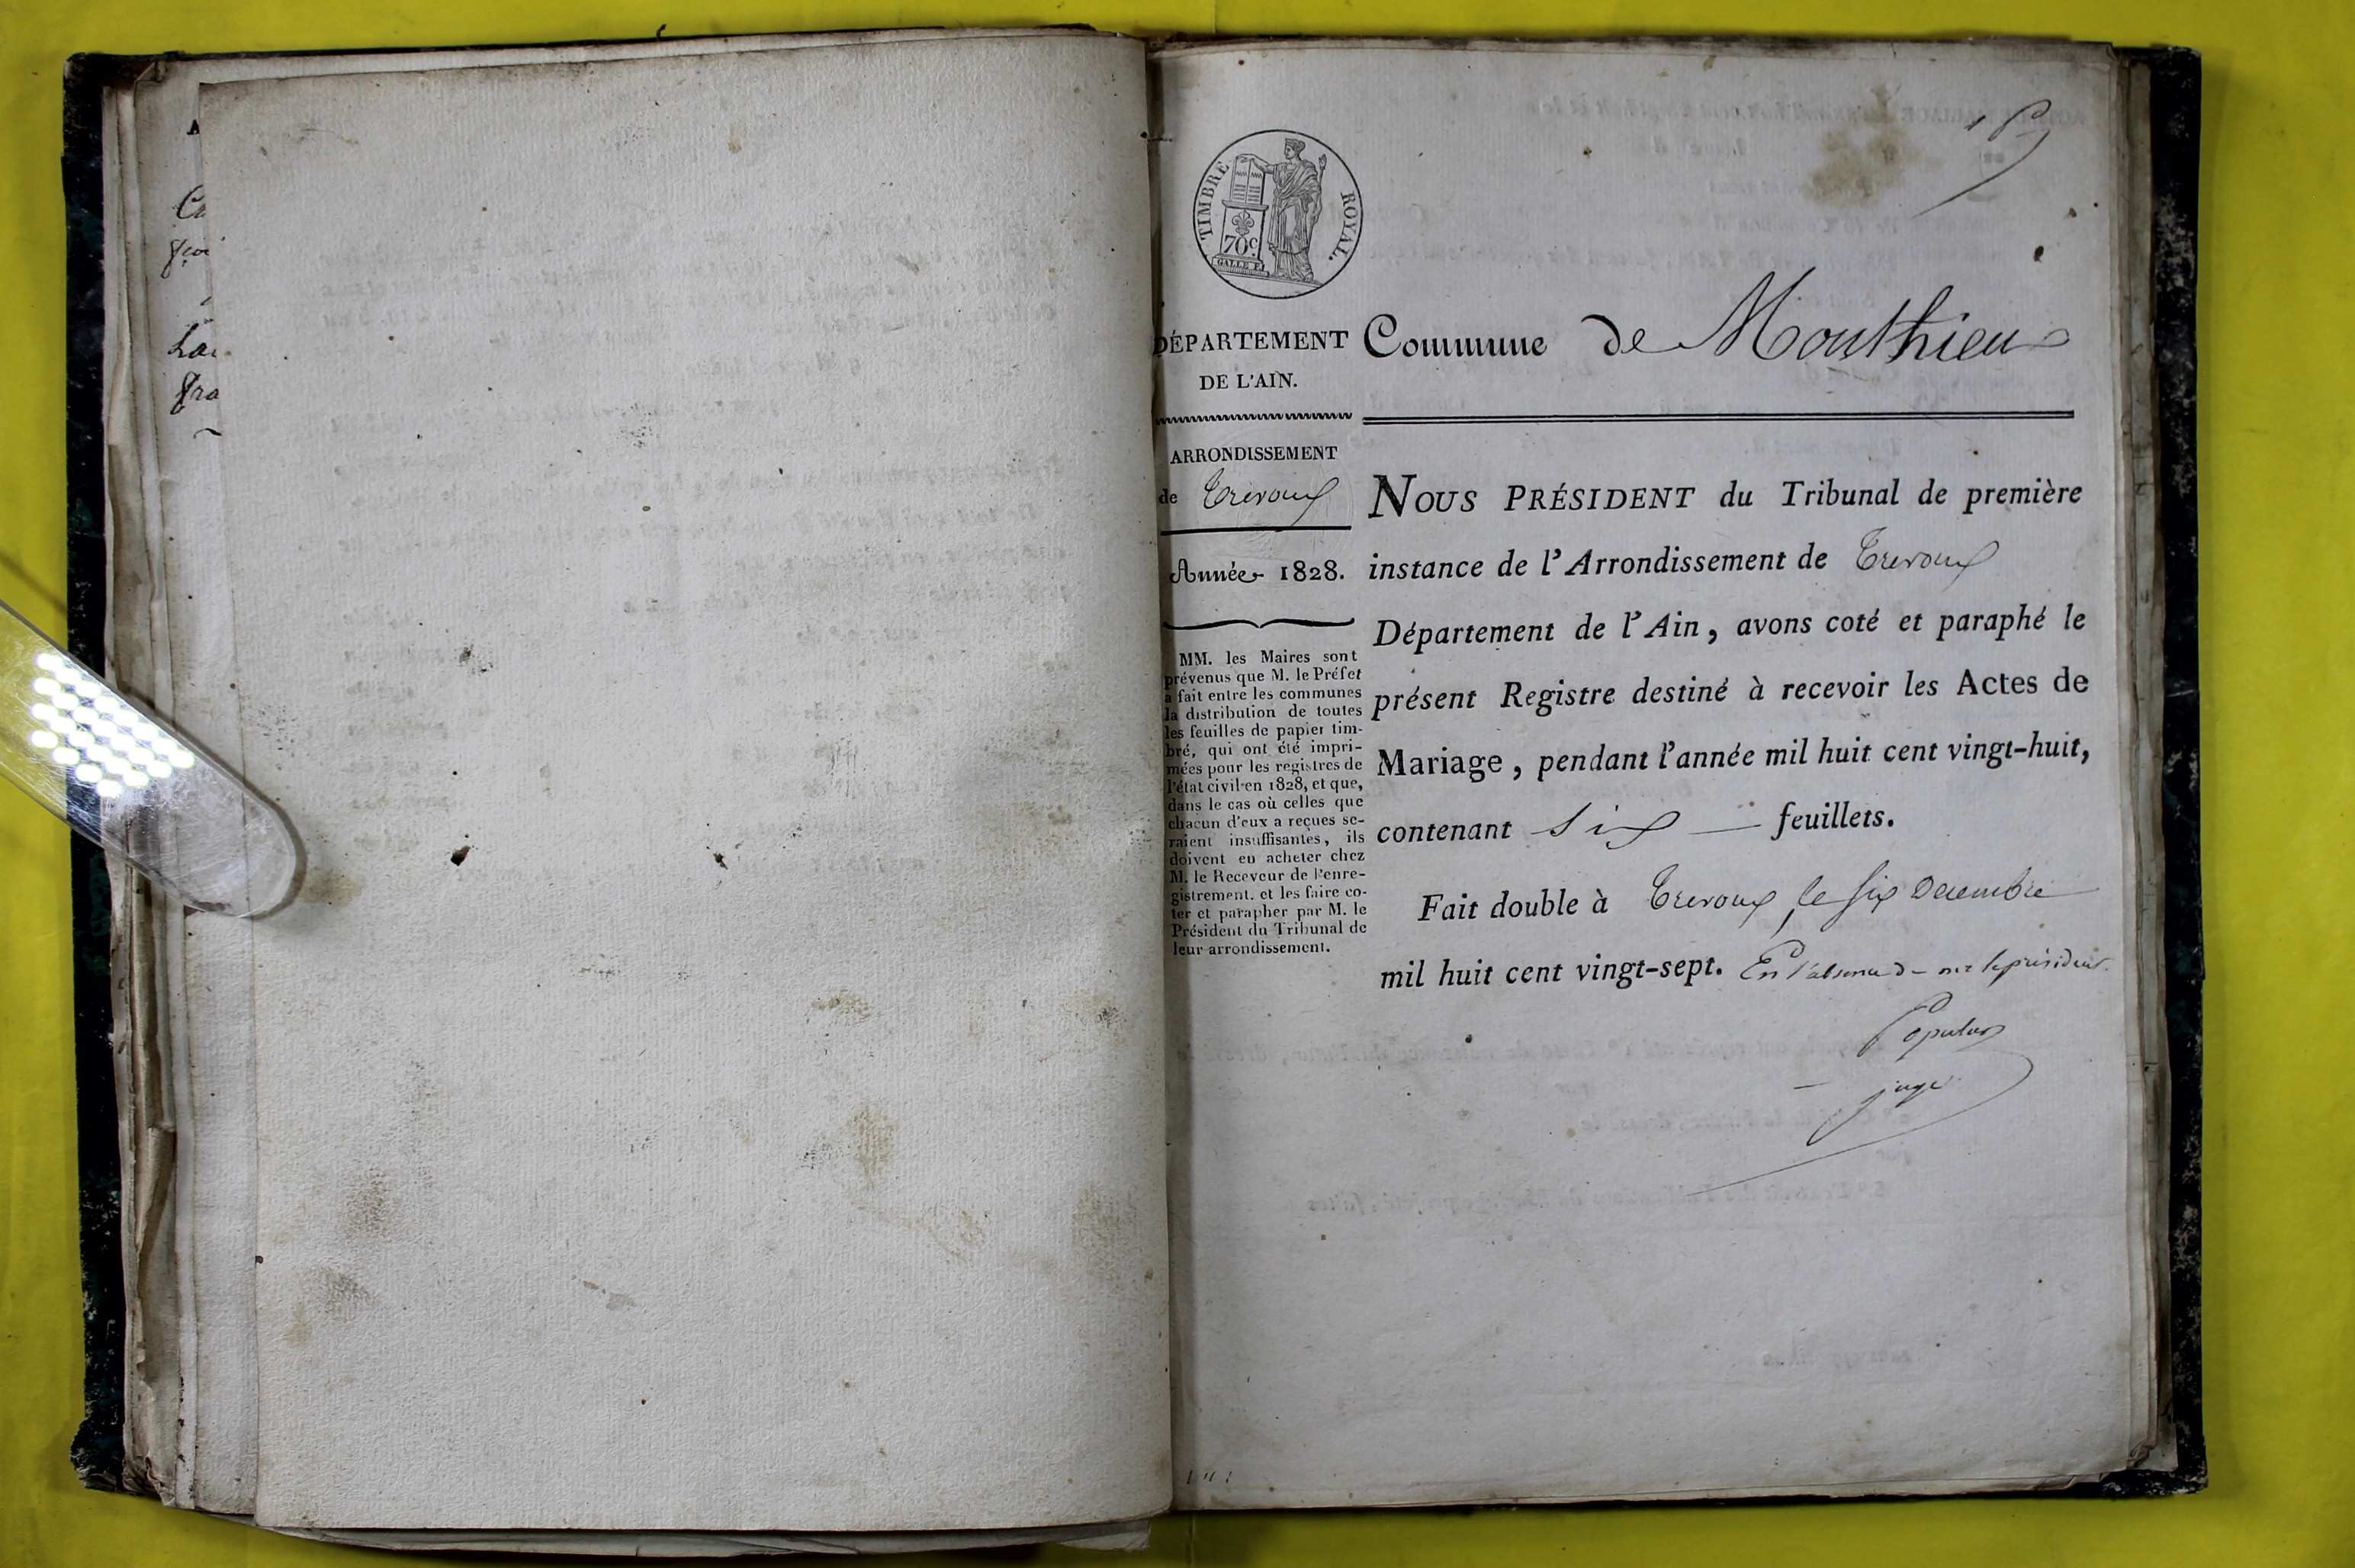 TIMBRE ROYAL.
70c.
GALLE F.
DÉPARTEMENT
DE L'AIN.
Commune de Monthieux
ARRONDISSEMENT
de Trevoux
Année 1828.
MM. les Maires sont
prévenus que M. le Préfet
a fait entre les communes
la distribution de toutes
les feuilles de papier tim-
bré, qui ont été impri-
mées pour les registres de
l'état civil en 1828, et que,
dans le cas où celles que
chacun d'eux a reçues se-
raient insuffisantes, ils
doivent en acheter chez
M. le Receveur de l'enre-
gistrement, et les faire co-
ter et parapher par M. le
Président du Tribunal de
leur arrondissement.
NOUS PRÉSIDENT du Tribunal de première
instance de l'Arrondissement de Trevoux
Département de l'Ain, avons coté et paraphé le
présent Registre destiné à recevoir les Actes de
Mariage, pendant l'année mil huit cent vingt-huit,
contenant six feuillets.
Fait double à Trevoux, le six Decembre
mil huit cent vingt-sept. En l'absence de mr le président
Populus
juge